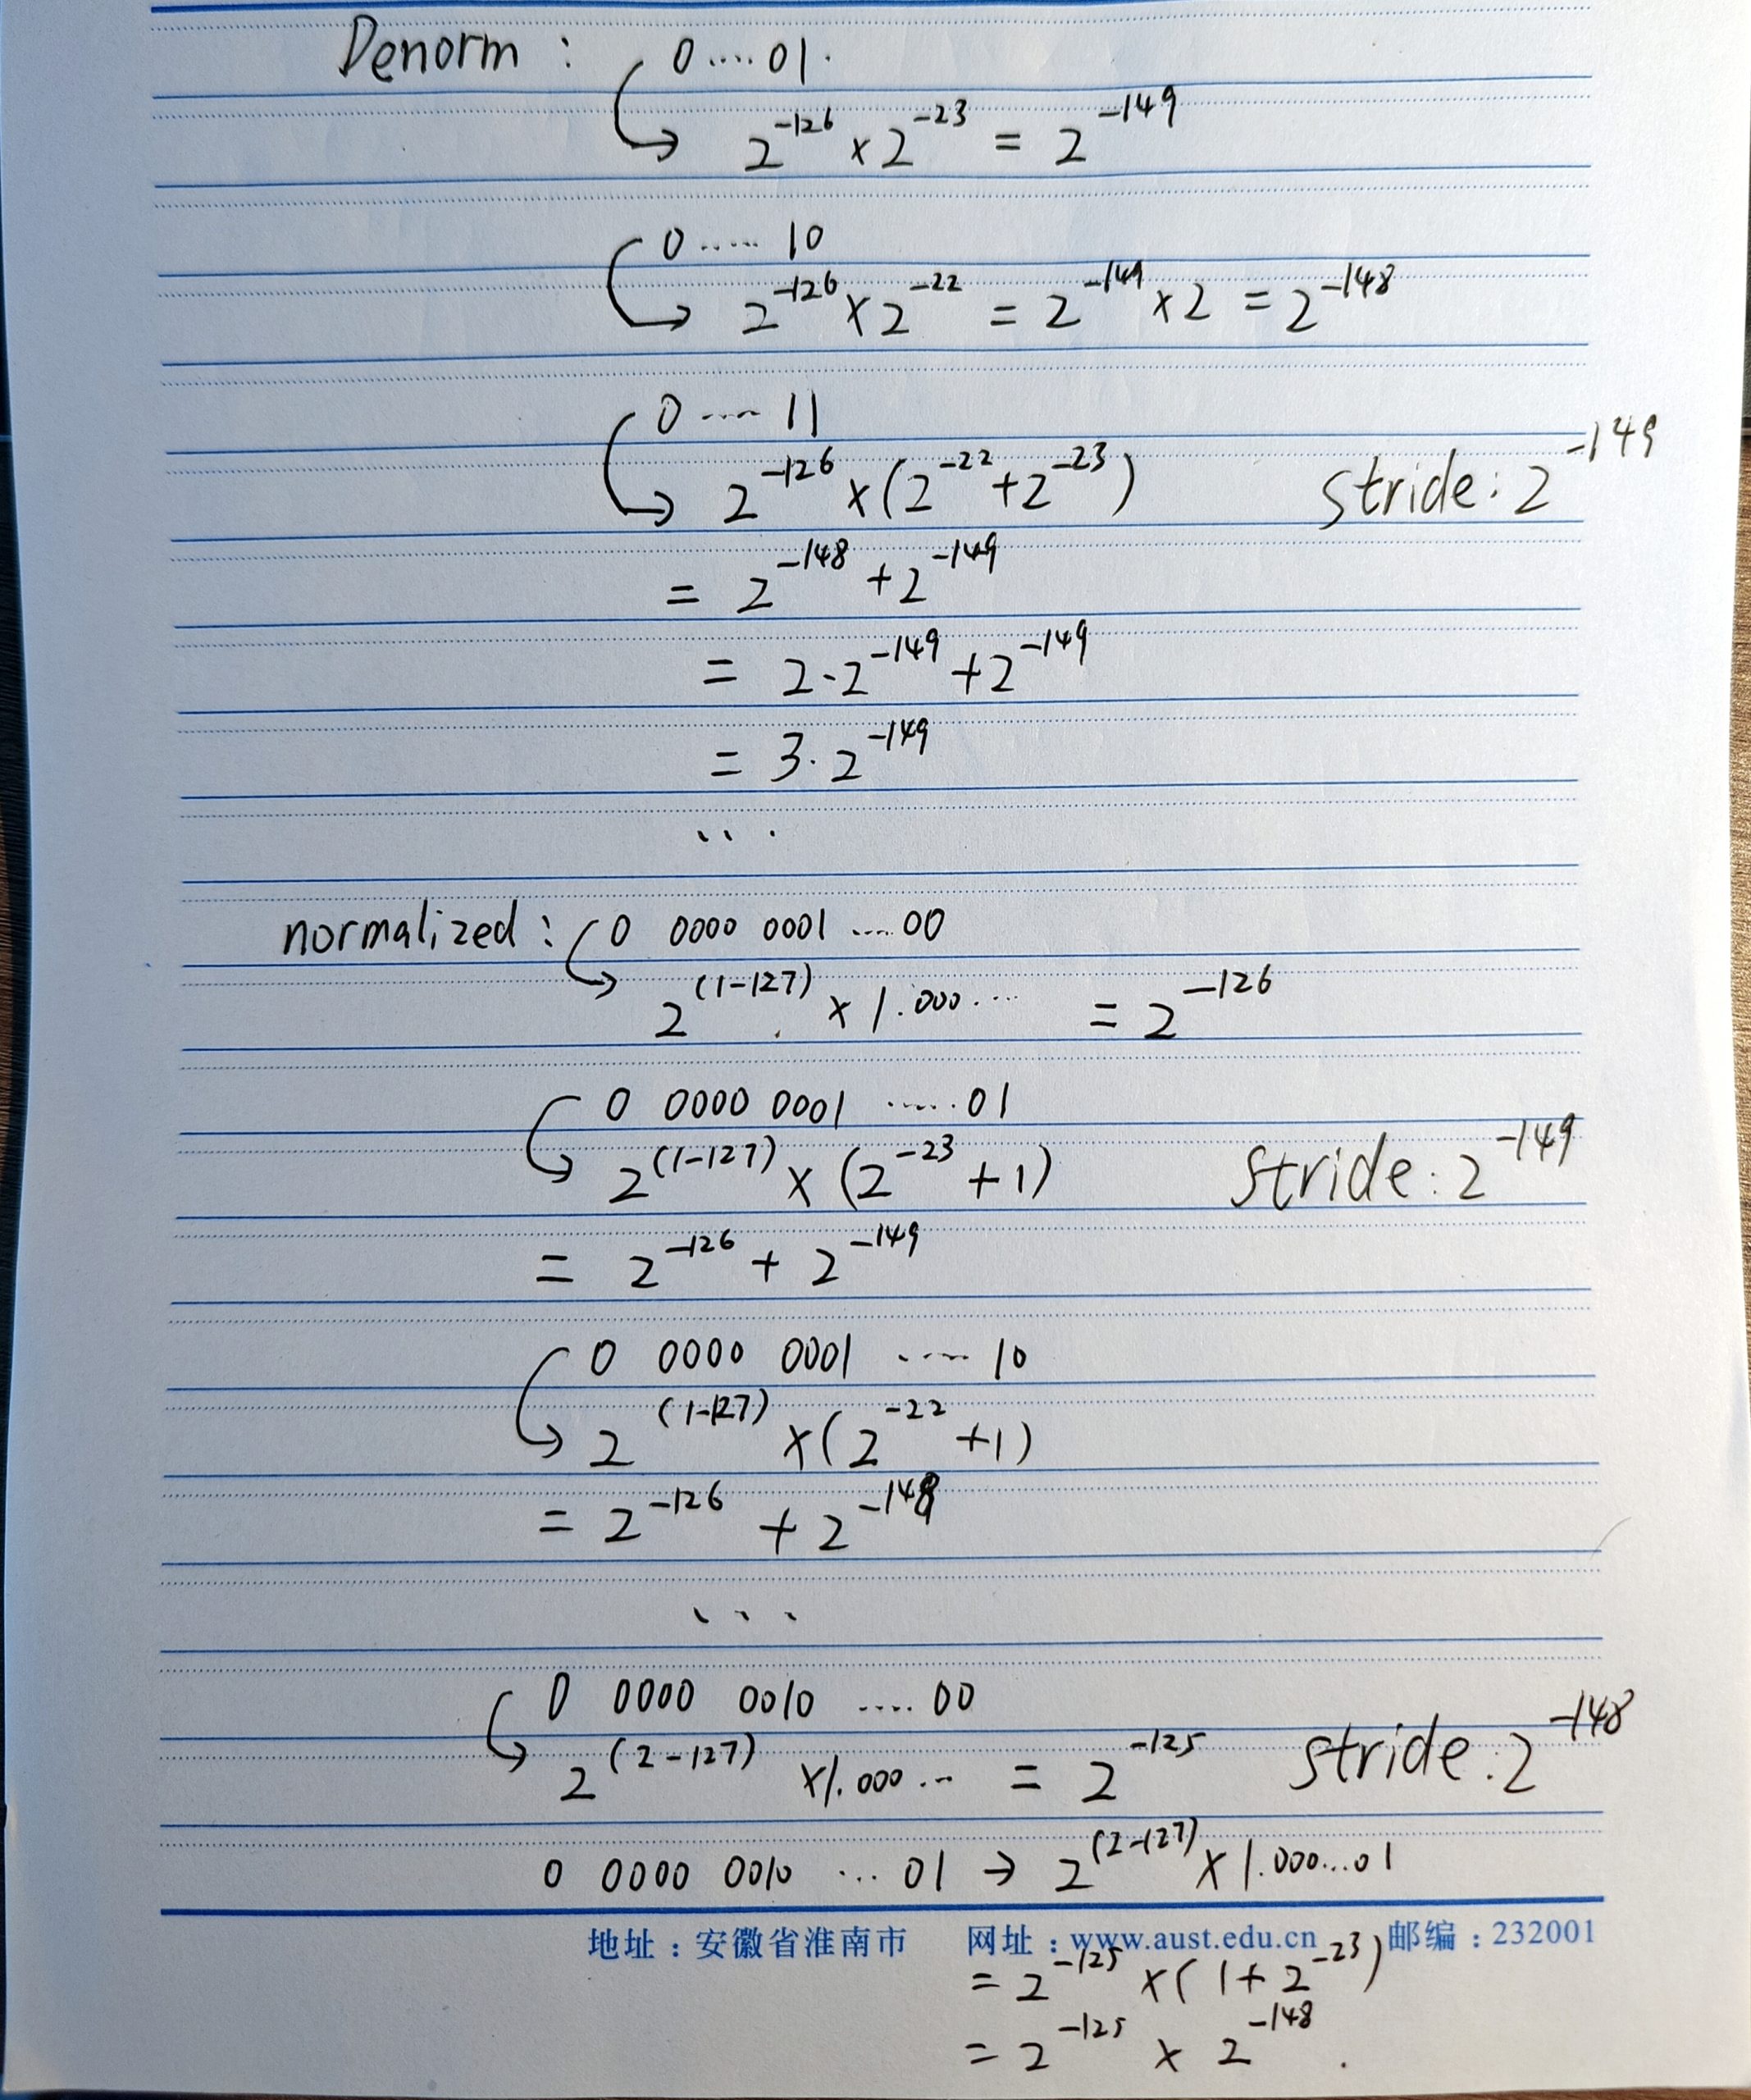 Denorm : 0....01.
2^-126 × 2^-23 = 2^-149
0..... 10
2^-126 × 2^-22 = 2^-149 × 2 = 2^-148
0 .... 11
2^-126 × (2^-22 + 2^-23) stride: 2^-149
= 2^-148 + 2^-149
= 2·2^-149 + 2^-149
= 3·2^-149
...
normalized : 0 0000 0001 ....00
2^(1-127) × 1.000... = 2^-126
0 0000 0001 .....01
2^(1-127) × (2^-23 + 1) stride: 2^-149
= 2^-126 + 2^-149
0 0000 0001 .... 10
2^(1-127) × (2^-22 + 1)
= 2^-126 + 2^-148
...
0 0000 0010 .... 00
2^(2-127) ×1.000... = 2^-125 stride: 2^-148
0 0000 0010 ... 01 → 2^(2-127) × 1.000...01
地址:安徽省淮南市 网址:www.aust.edu.cn 邮编:232001
= 2^-125 × (1 + 2^-23)
= 2^-125 × 2^-148.